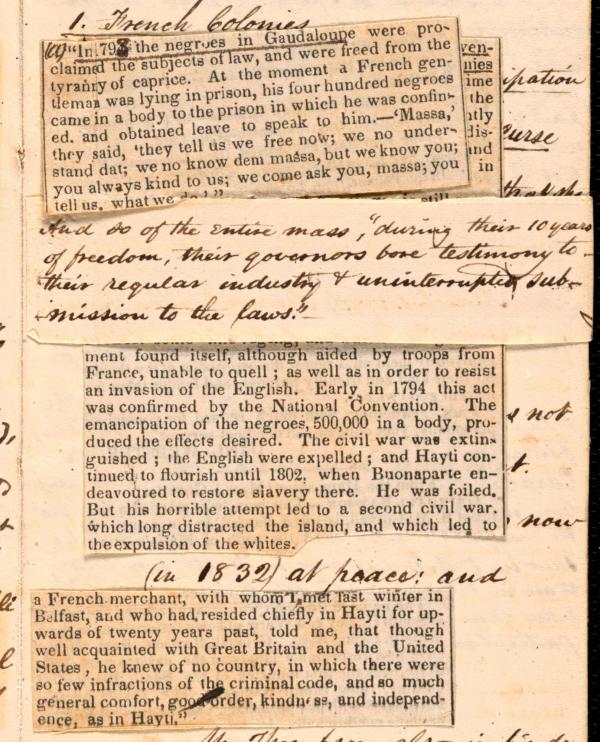 1. French Colonies
(a) "In 1793 the negroes in Gaudaloupe were pro-
claimed the subjects of law, and were freed from the
tyranny of caprice. At the moment a French gen-
tleman was lying in prison, his four hundred negroes
came in a body to the prison in which he was confin-
ed, and obtained leave to speak to him.—'Massa,'
they said, 'they tell us we free now; we no under-
stand dat; we no know dem massa, but we know you;
you always kind to us; we come ask you, massa; you
tell us, what we do!'"
ven-
nies
ime
the
ntly
dis-
and
in
ipation
urse
still
And so of the entire mass, "during their 10 years
of freedom, their governors bore testimony to
their regular industry & uninterrupted sub-
mission to the laws."
ment found itself, although aided by troops from
France, unable to quell; as well as in order to resist
an invasion of the English. Early in 1794 this act
was confirmed by the National Convention. The
emancipation of the negroes, 500,000 in a body, pro-
duced the effects desired. The civil war was extin-
guished; the English were expelled; and Hayti con-
tinued to flourish until 1802, when Buonaparte en-
deavoured to restore slavery there. He was foiled.
But his horrible attempt led to a second civil war,
which long distracted the island, and which led to
the expulsion of the whites.
not
t.
now
(in 1832) at peace: and
a French merchant, with whom I met last winter in
Belfast, and who had resided chiefly in Hayti for up-
wards of twenty years past, told me, that though
well acquainted with Great Britain and the United
States, he knew of no country, in which there were
so few infractions of the criminal code, and so much
general comfort, good order, kindness, and independ-
ence, as in Hayti."